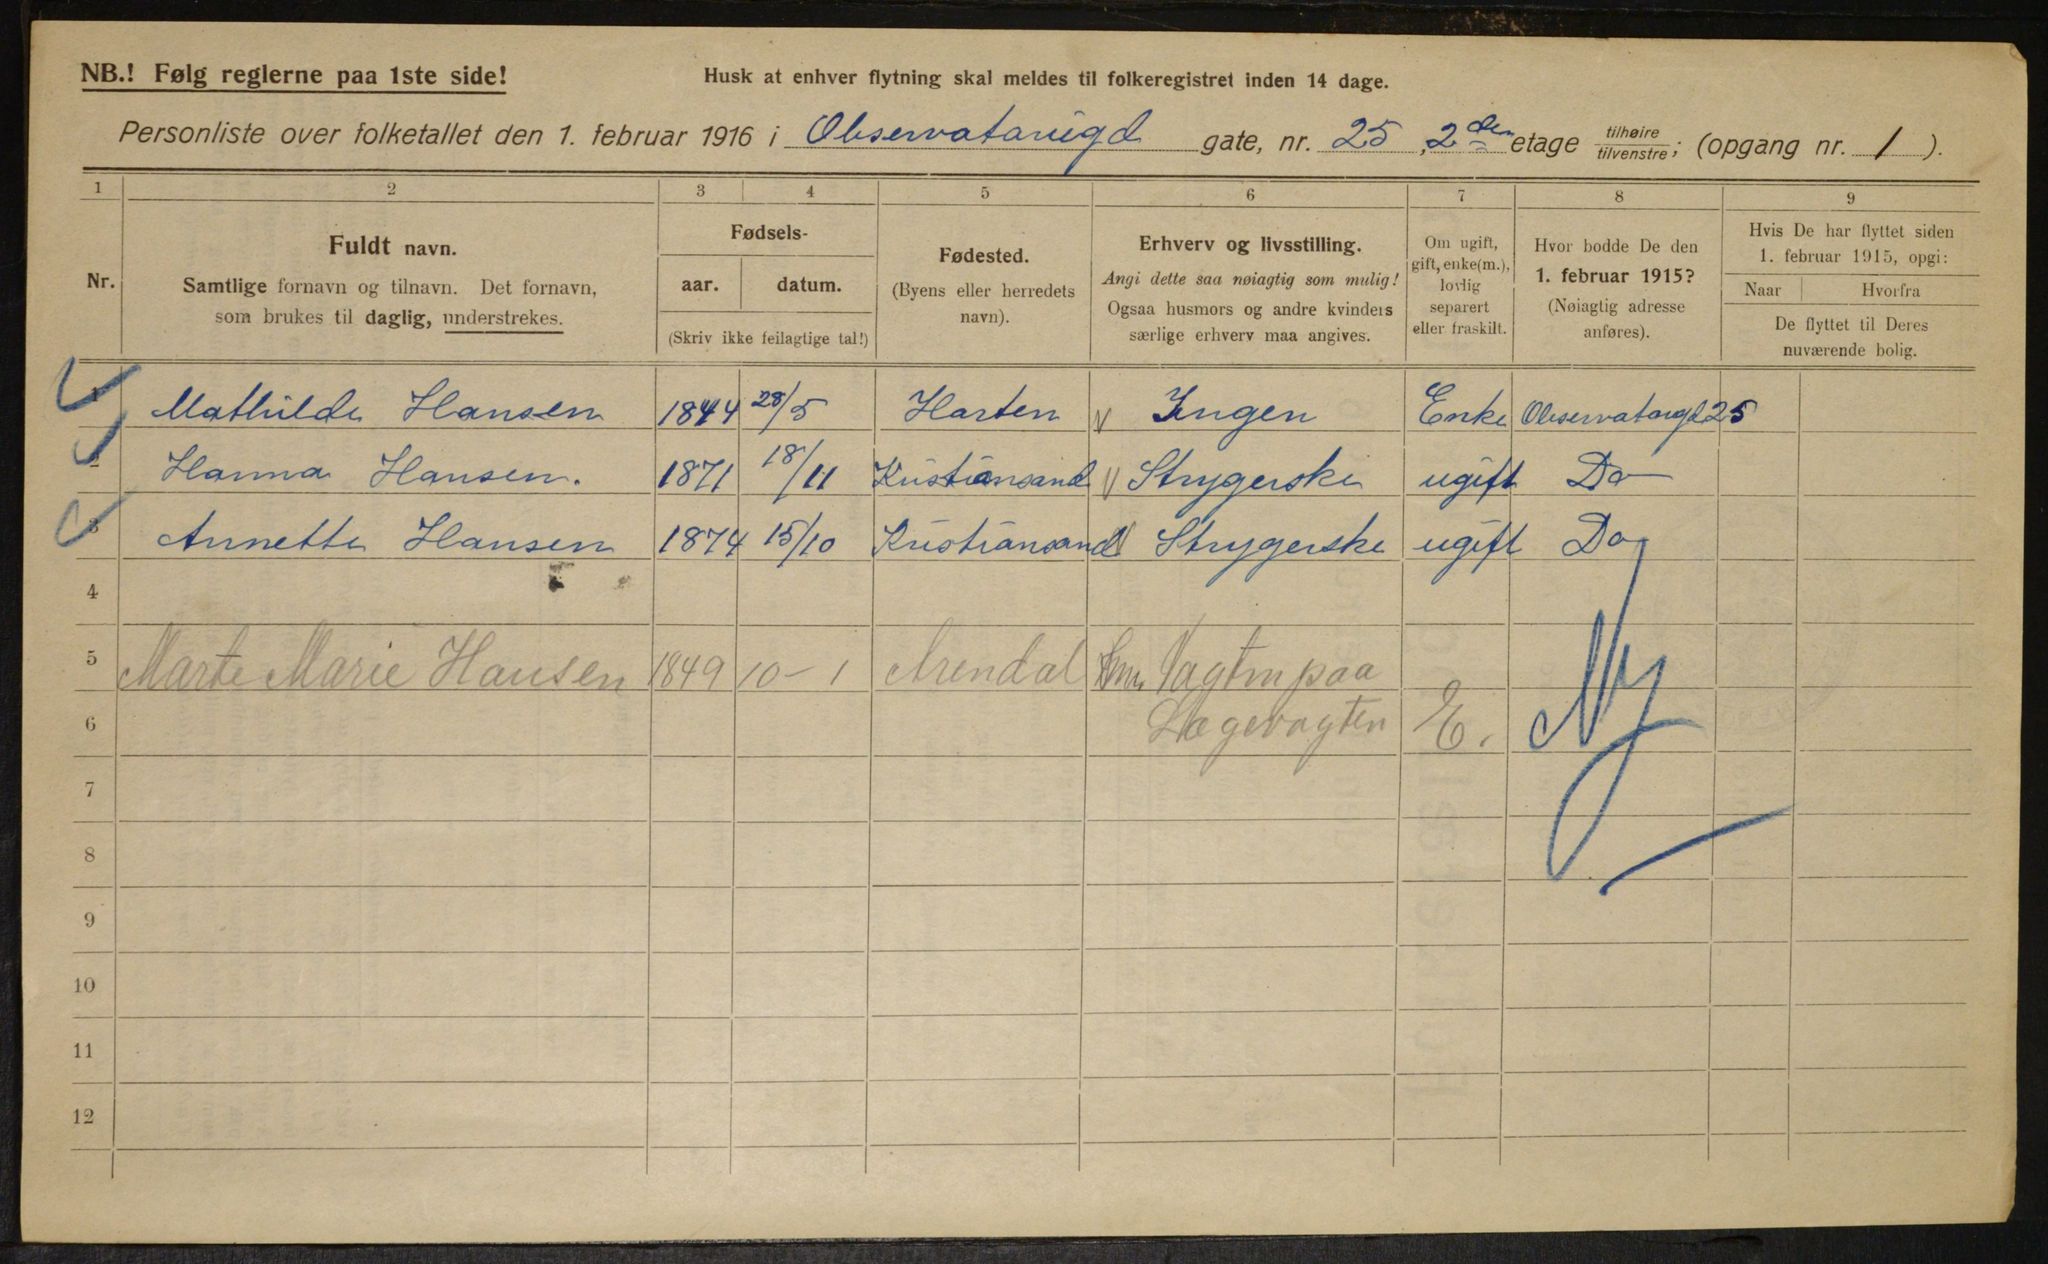 NB.! Følg reglerne paa 1ste side!
Husk at enhver flytning skal meldes til folkeregistret inden 14 dage.
Personliste over folketallet den 1. februar 1916 i Observatorigd gate, nr. 25, 2den etage tilhøire/tilvenstre; (opgang nr. 1).
1 2 3 4 5 6 7 8 9
Nr.
Fuldt navn.
Samtlige fornavn og tilnavn. Det fornavn,
som brukes til daglig, understrekes.
Fødsels-
aar. datum.
(Skriv ikke feilagtige tal!)
Fødested.
(Byens eller herredets
navn).
Erhverv og livsstilling.
Angi dette saa nøiagtig som mulig!
Ogsaa husmors og andre kvinders
særlige erhverv maa angives.
Om ugift,
gift, enke(m.),
lovlig
separert
eller fraskilt.
Hvor bodde De den
1. februar 1915?
(Nøiagtig adresse
anføres).
Hvis De har flyttet siden
1. februar 1915, opgi:
Naar Hvorfra
De flyttet til Deres
nuværende bolig.
1 Mathilde Hansen 1844 28/5 Ingen Enke Observatorigd 25
2 Hanna Hansen. 1871 18/11 Kristiansand Strygerske ugift Do
3 Annette Hansen 1874 15/10 Kristiansand Strygerske ugift Do
4
5 Marte Marie Hansen 1849 10-1 Arendal Vagtm paa
6 Lægevagten E. Ny
7
8
9
10
11
12